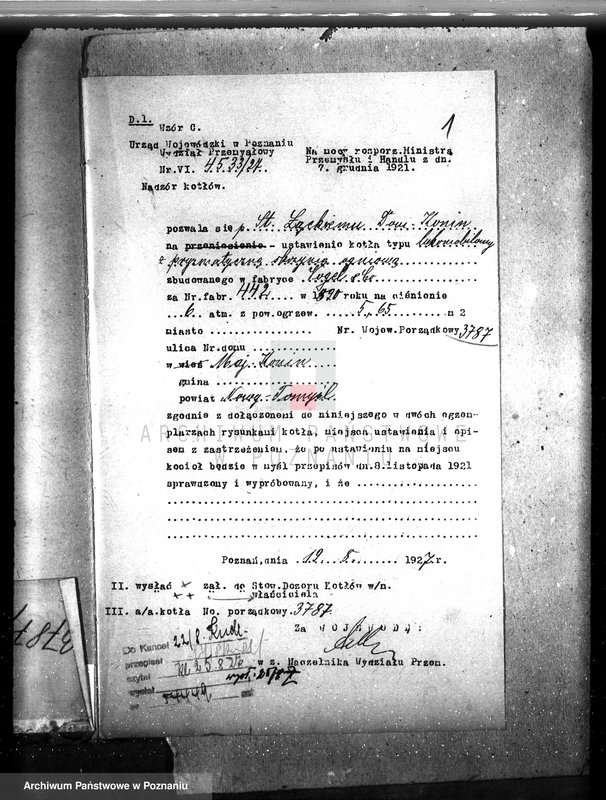 D.1.
Wzór C.
1
Urząd Wojewódzki w Poznaniu
Wydział Przemysłowy
Nr.VI. 4533/27.
Nadzór kotłów.
Na mocy rozporz.Ministra
Przemysłu i Handlu z dn.
7. grudnia 1921.
pozwala się p. St. Łąckiemu Dom. Konin
na przeniesienie - ustawienie kotła typu lokomobilowy
z pryzmatyczną skrzynią ogniową
zbudowanego w fabryce Vogel & Co
za Nr.fabr. 442 w 1890 roku na ciśnienie
6 atm. z pow.ogrzew. 5,65 m 2
miasto Nr. Wojew.Porządkowy 3787
ulica Nr.domu
w wsi Maj. Konin
gmina
powiat Nowy-Tomyśl.
zgodnie z dołączonemi do niniejszego w dwóch egzem-
plarzach rysunkami kotła, miejsca ustawienia i opi-
sem z zastrzeżeniem, że po ustawieniu na miejscu
kocioł będzie w myśl przepisów dn.8.listopada 1921
sprawdzony i wypróbowany, i że
Poznań,dnia 19. 8. 1927.r.
II. wysłać zał. do Stow.Dozoru Kotłów w/m.
++ właściciela
III. a/a.kotła No. porządkowy. 3787
Za WOJEWODĘ:
w z. Naczelnika Wydziału Przem.
Do Kancel 22/8.
przepisał
czytał
wysłał
3787
ARCHIWUM PAŃSTWOWE
W POZNANIU
Archiwum Państwowe w Poznaniu